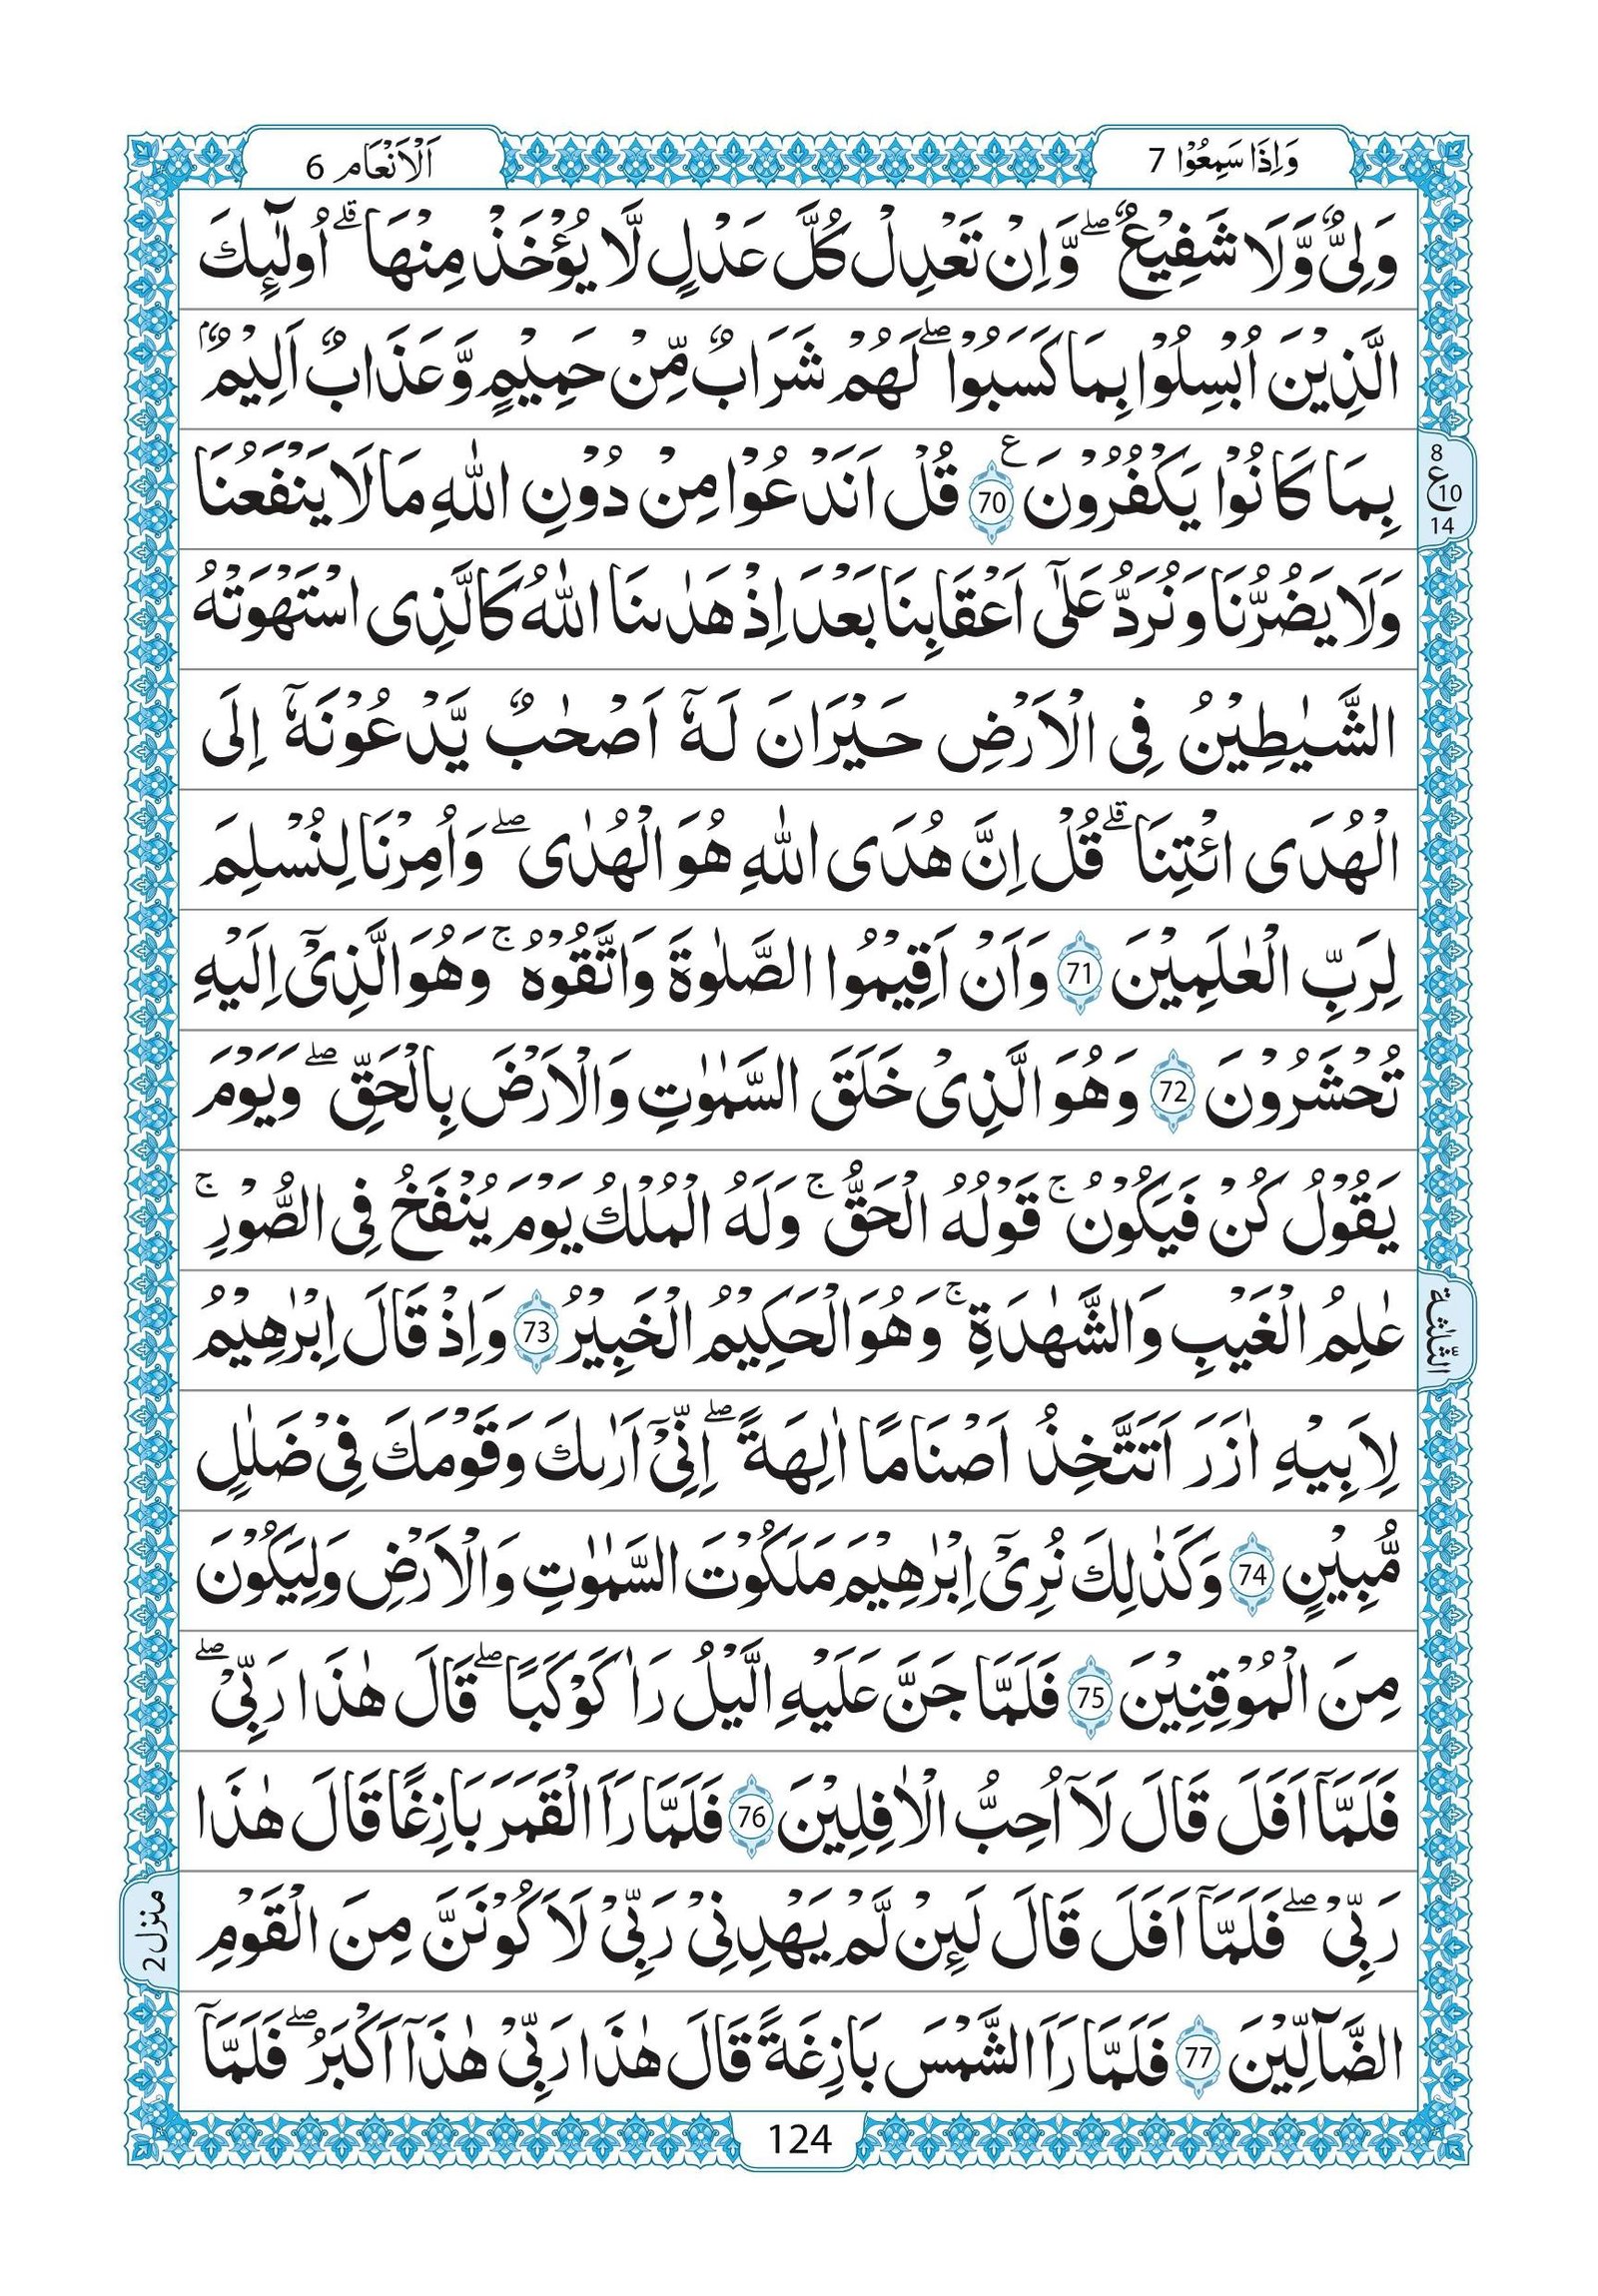 وَاِذَا سَمِعُوْا 7
اَلْاَنْعَام 6
وَلِیٌّ وَّلَا شَفِیْعٌ ۖ وَّاِنْ تَعْدِلْ كُلَّ عَدْلٍ لَّا یُؤْخَذْ مِنْهَا ۗ اُولٰٓىِٕكَ
الَّذِیْنَ اُبْسِلُوْا بِمَا كَسَبُوْا ۖ لَهُمْ شَرَابٌ مِّنْ حَمِیْمٍ وَّعَذَابٌ اَلِیْمٌۢ
بِمَا كَانُوْا یَكْفُرُوْنَ ع 70 قُلْ اَنَدْعُوْا مِنْ دُوْنِ اللّٰهِ مَا لَا یَنْفَعُنَا
8
ع 10
14
وَلَا یَضُرُّنَا وَنُرَدُّ عَلٰۤی اَعْقَابِنَا بَعْدَ اِذْ هَدٰىنَا اللّٰهُ كَالَّذِی اسْتَهْوَتْهُ
الشَّیٰطِیْنُ فِی الْاَرْضِ حَیْرَانَ لَهٗۤ اَصْحٰبٌ یَّدْعُوْنَهٗۤ اِلَی
الْهُدَی ائْتِنَا ۗ قُلْ اِنَّ هُدَی اللّٰهِ هُوَ الْهُدٰی ۖ وَاُمِرْنَا لِنُسْلِمَ
لِرَبِّ الْعٰلَمِیْنَ 71 وَاَنْ اَقِیْمُوا الصَّلٰوةَ وَاتَّقُوْهُ ۚ وَهُوَ الَّذِیْۤ اِلَیْهِ
تُحْشَرُوْنَ 72 وَهُوَ الَّذِیْ خَلَقَ السَّمٰوٰتِ وَالْاَرْضَ بِالْحَقِّ ۖ وَیَوْمَ
یَقُوْلُ كُنْ فَیَكُوْنُ ۚ قَوْلُهُ الْحَقُّ ۚ وَلَهُ الْمُلْكُ یَوْمَ یُنْفَخُ فِی الصُّوْرِ ۚ
عٰلِمُ الْغَیْبِ وَالشَّهٰدَةِ ۚ وَهُوَ الْحَكِیْمُ الْخَبِیْرُ 73 وَاِذْ قَالَ اِبْرٰهِیْمُ
الثلٰثة
لِاَبِیْهِ اٰزَرَ اَتَتَّخِذُ اَصْنَامًا اٰلِهَةً ۖ اِنِّیْۤ اَرٰىكَ وَقَوْمَكَ فِیْ ضَلٰلٍ
مُّبِیْنٍ 74 وَكَذٰلِكَ نُرِیْۤ اِبْرٰهِیْمَ مَلَكُوْتَ السَّمٰوٰتِ وَالْاَرْضِ وَلِیَكُوْنَ
مِنَ الْمُوْقِنِیْنَ 75 فَلَمَّا جَنَّ عَلَیْهِ الَّیْلُ رَاٰ كَوْكَبًا ۖ قَالَ هٰذَا رَبِّیْ ۖ
فَلَمَّاۤ اَفَلَ قَالَ لَاۤ اُحِبُّ الْاٰفِلِیْنَ 76 فَلَمَّا رَاَ الْقَمَرَ بَازِغًا قَالَ هٰذَا
رَبِّیْ ۖ فَلَمَّاۤ اَفَلَ قَالَ لَىِٕنْ لَّمْ یَهْدِنِیْ رَبِّیْ لَاَكُوْنَنَّ مِنَ الْقَوْمِ
منزل 2
الضَّآلِّیْنَ 77 فَلَمَّا رَاَ الشَّمْسَ بَازِغَةً قَالَ هٰذَا رَبِّیْ هٰذَاۤ اَكْبَرُ ۖ فَلَمَّاۤ
124